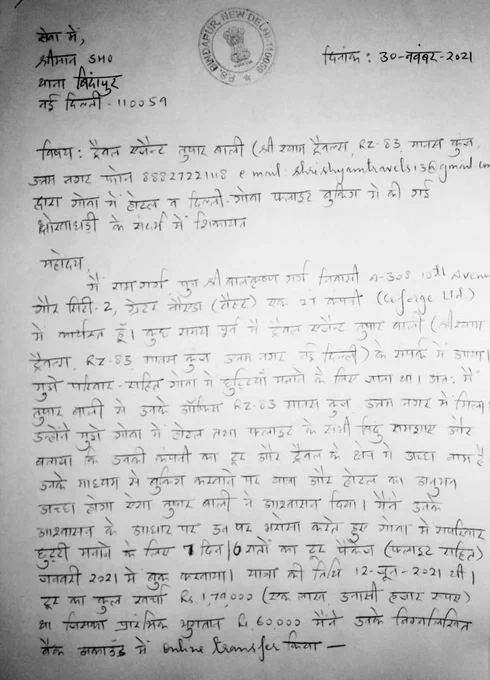 सेवा में,
श्रीमान SHO
थाना बिंदापुर
नई दिल्ली-110059
P.S. BINDAPUR, NEW DELHI-110059
दिनांक : 30-नवंबर-2021
विषय: ट्रैवल एजेन्ट तुषार बाली (श्री श्याम ट्रैवल्स, RZ-83, मानस कुंज,
उत्तम नगर फोन 8882722118 email: shrishyamtravels13@gmail.com
द्वारा गोवा में होटल व दिल्ली-गोवा फ्लाइट बुकिंग में की गई
धोखाधड़ी के संदर्भ में शिकायत
महोदय,
मैं राम गर्ग पुत्र श्री बालकृष्ण गर्ग निवासी A-308 10th Avenue
गौर सिटी-2, ग्रेटर नौएडा (वैस्ट) एक IT कंपनी (Coforge Ltd)
में कार्यरत हूँ। कुछ समय पूर्व मैं ट्रैवल एजेन्ट तुषार बाली (श्री श्याम
ट्रैवल्स, RZ-83, मानस कुंज उत्तम नगर नई दिल्ली) के संपर्क में आया।
मुझे परिवार-सहित गोवा में छुट्टियाँ मनाने के लिए जाना था। अतः मैं
तुषार बाली से उनके ऑफिस RZ-83 मानस कुंज, उत्तम नगर में मिला।
उन्होंने मुझे गोवा में होटल तथा फ्लाइट के सभी बिंदु समझाए और
बताया कि उनकी कंपनी का टूर और ट्रैवल के क्षेत्र में अच्छा नाम है
उनके माध्यम से बुकिंग करवाने पर यात्रा और होटल का अनुभव
अच्छा होगा ऐसा तुषार बाली ने आश्वासन दिया। मैंने उनके
आश्वासन के आधार पर उन पर भरोसा करते हुए गोवा में सपरिवार
छुट्टी मनाने के लिए 7 दिन/6 रातों का टूर पैकेज (फ्लाइट सहित)
जनवरी 2021 में बुक करवाया। यात्रा की तिथि 12-जून-2021 थी।
टूर का कुल खर्चा Rs. 1,79,000 (एक लाख उनासी हजार रुपए)
था जिसका प्रारंभिक भुगतान Rs 60000 मैंने उनके निम्नलिखित
बैंक अकाउंट में online transfer किया —